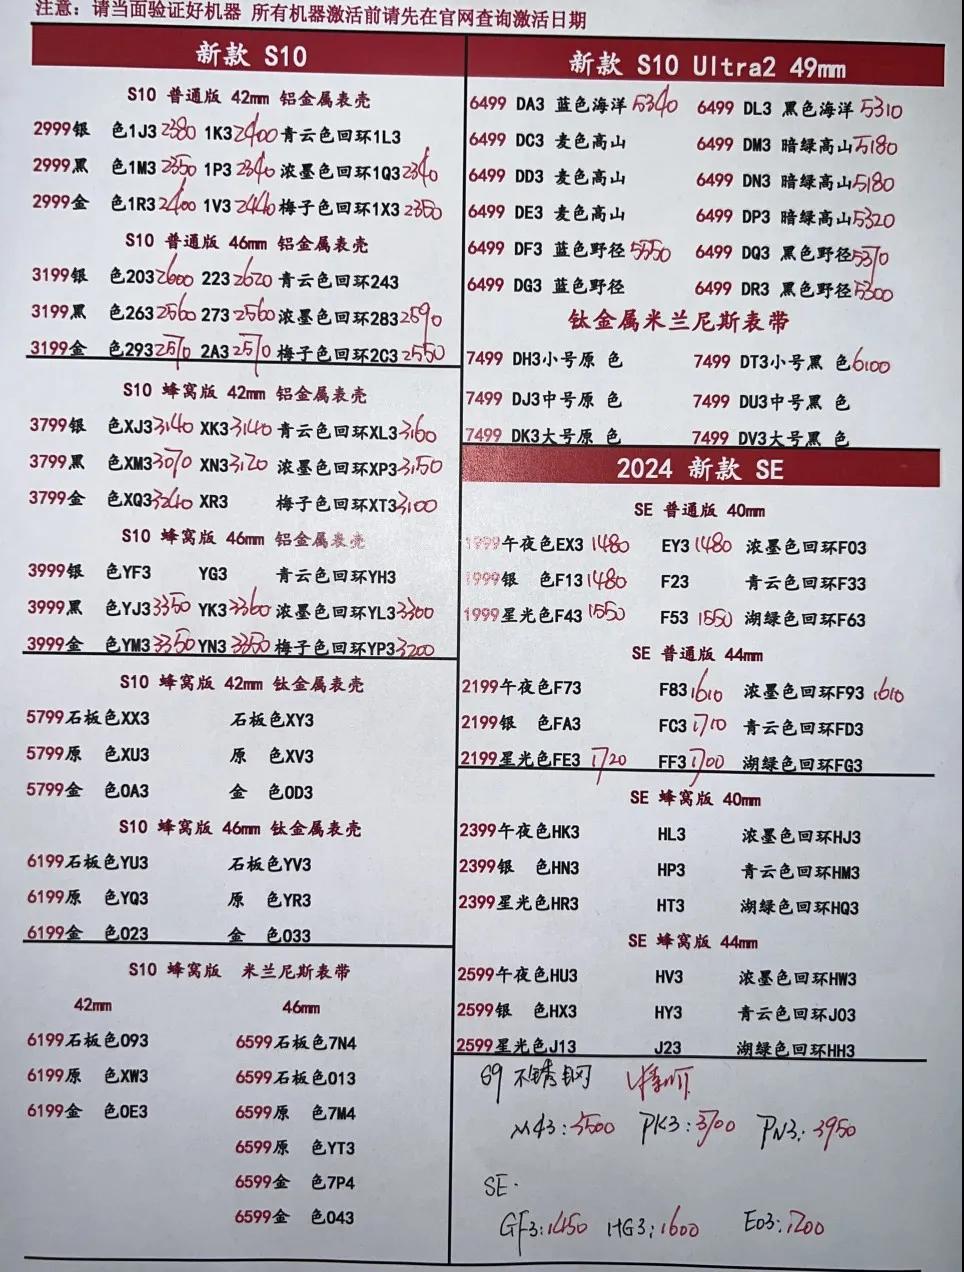 注意：请当面验证好机器 所有机器激活前请先在官网查询激活日期
新款 S10
S10 普通版 42mm 铝金属表壳
2999银 色1J3 2380 1K3 2400 青云色回环1L3
2999黑 色1M3 2350 1P3 2340 浓墨色回环1Q3 2340
2999金 色1R3 2400 1V3 2440 梅子色回环1X3 2350
S10 普通版 46mm 铝金属表壳
3199银 色203 2600 223 2620 青云色回环243
3199黑 色263 2560 273 2560 浓墨色回环283 2590
3199金 色293 2570 2A3 2570 梅子色回环2C3 2550
S10 蜂窝版 42mm 铝金属表壳
3799银 色XJ3 3140 XK3 3140 青云色回环XL3 3160
3799黑 色XM3 3070 XN3 3120 浓墨色回环XP3 3150
3799金 色XQ3 3240 XR3 梅子色回环XT3 3100
S10 蜂窝版 46mm 铝金属表壳
3999银 色YF3 YG3 青云色回环YH3
3999黑 色YJ3 3350 YK3 3360 浓墨色回环YL3 3300
3999金 色YM3 3350 YN3 3350 梅子色回环YP3 3200
S10 蜂窝版 42mm 钛金属表壳
5799石板色XX3 石板色XY3
5799原 色XU3 原 色XV3
5799金 色0A3 金 色0D3
S10 蜂窝版 46mm 钛金属表壳
6199石板色YU3 石板色YV3
6199原 色YQ3 原 色YR3
6199金 色023 金 色033
S10 蜂窝版 米兰尼斯表带
42mm 46mm
6199石板色093 6599石板色7N4
6199原 色XW3 6599石板色013
6199金 色0E3 6599原 色7M4
6599原 色YT3
6599金 色7P4
6599金 色043
新款 S10 Ultra2 49mm
6499 DA3 蓝色海洋 5340 6499 DL3 黑色海洋 5310
6499 DC3 麦色高山 6499 DM3 暗绿高山 5180
6499 DD3 麦色高山 6499 DN3 暗绿高山 5180
6499 DE3 麦色高山 6499 DP3 暗绿高山 5320
6499 DF3 蓝色野径 5550 6499 DQ3 黑色野径 5370
6499 DG3 蓝色野径 6499 DR3 黑色野径 5300
钛金属米兰尼斯表带
7499 DH3小号原 色 7499 DT3小号黑 色 6100
7499 DJ3中号原 色 7499 DU3中号黑 色
7499 DK3大号原 色 7499 DV3大号黑 色
2024 新款 SE
SE 普通版 40mm
1999午夜色EX3 1480 EY3 1480 浓墨色回环F03
1999银 色F13 1480 F23 青云色回环F33
1999星光色F43 1550 F53 1550 湖绿色回环F63
SE 普通版 44mm
2199午夜色F73 F83 1610 浓墨色回环F93 1610
2199银 色FA3 FC3 1710 青云色回环FD3
2199星光色FE3 1720 FF3 1700 湖绿色回环FG3
SE 蜂窝版 40mm
2399午夜色HK3 HL3 浓墨色回环HJ3
2399银 色HN3 HP3 青云色回环HM3
2399星光色HR3 HT3 湖绿色回环HQ3
SE 蜂窝版 44mm
2599午夜色HU3 HV3 浓墨色回环HW3
2599银 色HX3 HY3 青云色回环J03
2599星光色J13 J23 湖绿色回环HH3
S9 不锈钢
M43:3500 PK3:3700 PN3:3950
SE.
GF3:1450 HG3:1600 E03:1200